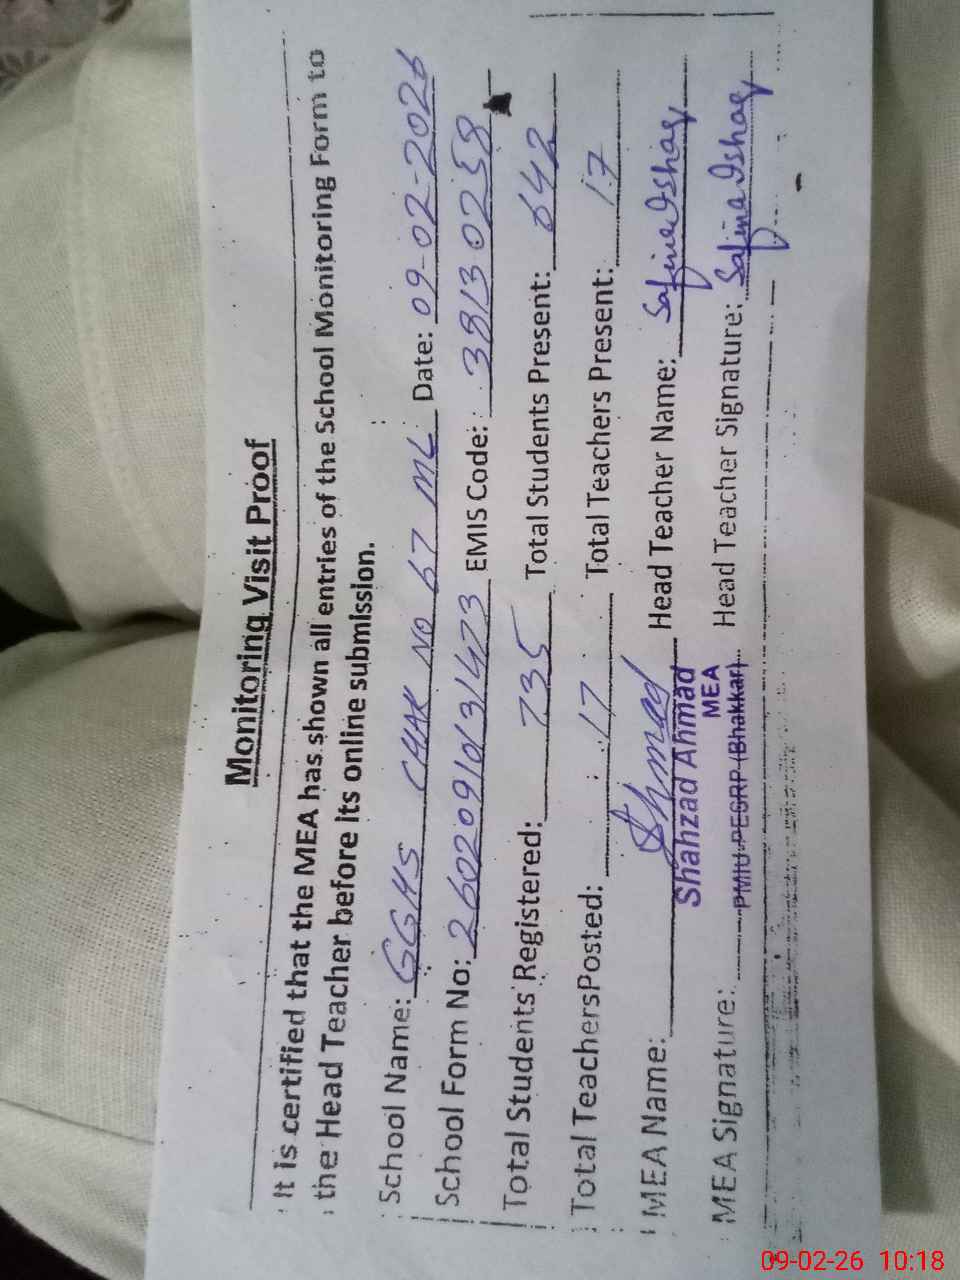 Monitoring Visit Proof
It is certified that the MEA has shown all entries of the School Monitoring Form to
the Head Teacher before its online submission.
School Name: GGHS CHAK NO 67 ML Date: 09-02-2026
School Form No: 26020910131473 EMIS Code: 38130258
Total Students Registered: 735 Total Students Present: 642
Total Teachers Posted: 17 Total Teachers Present: 17
MEA Name: Ahmad Head Teacher Name: Safina Ishaq
Shahzad Ahmad
MEA
MEA Signature: PMIU-PESRP (Bhakkar) Head Teacher Signature: Safina Ishaq
09-02-26 10:18